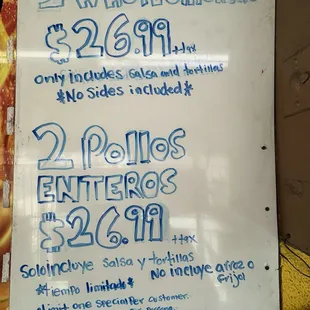 2
$26.99 ++ax
only includes salsa and tortillas
*No sides included*
2 Pollos
ENTEROS
$26.99 ++ax
Solo Incluye Salsa y tortillas
No incluye arroz o
frijol
*tiempo limitado*
limit one special Per customer